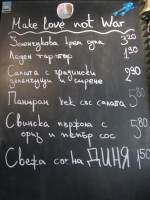 Make Love not War
Зеленчукова крем супа 3,20
Леден таратор 1,90
Салата с градински зеленчуци и сирене 2,90
Паниран кекс със салата 5,80
Свинска пържола с ориз и пипер сос 5,80
Свежа сочна ДИНЯ 1,50